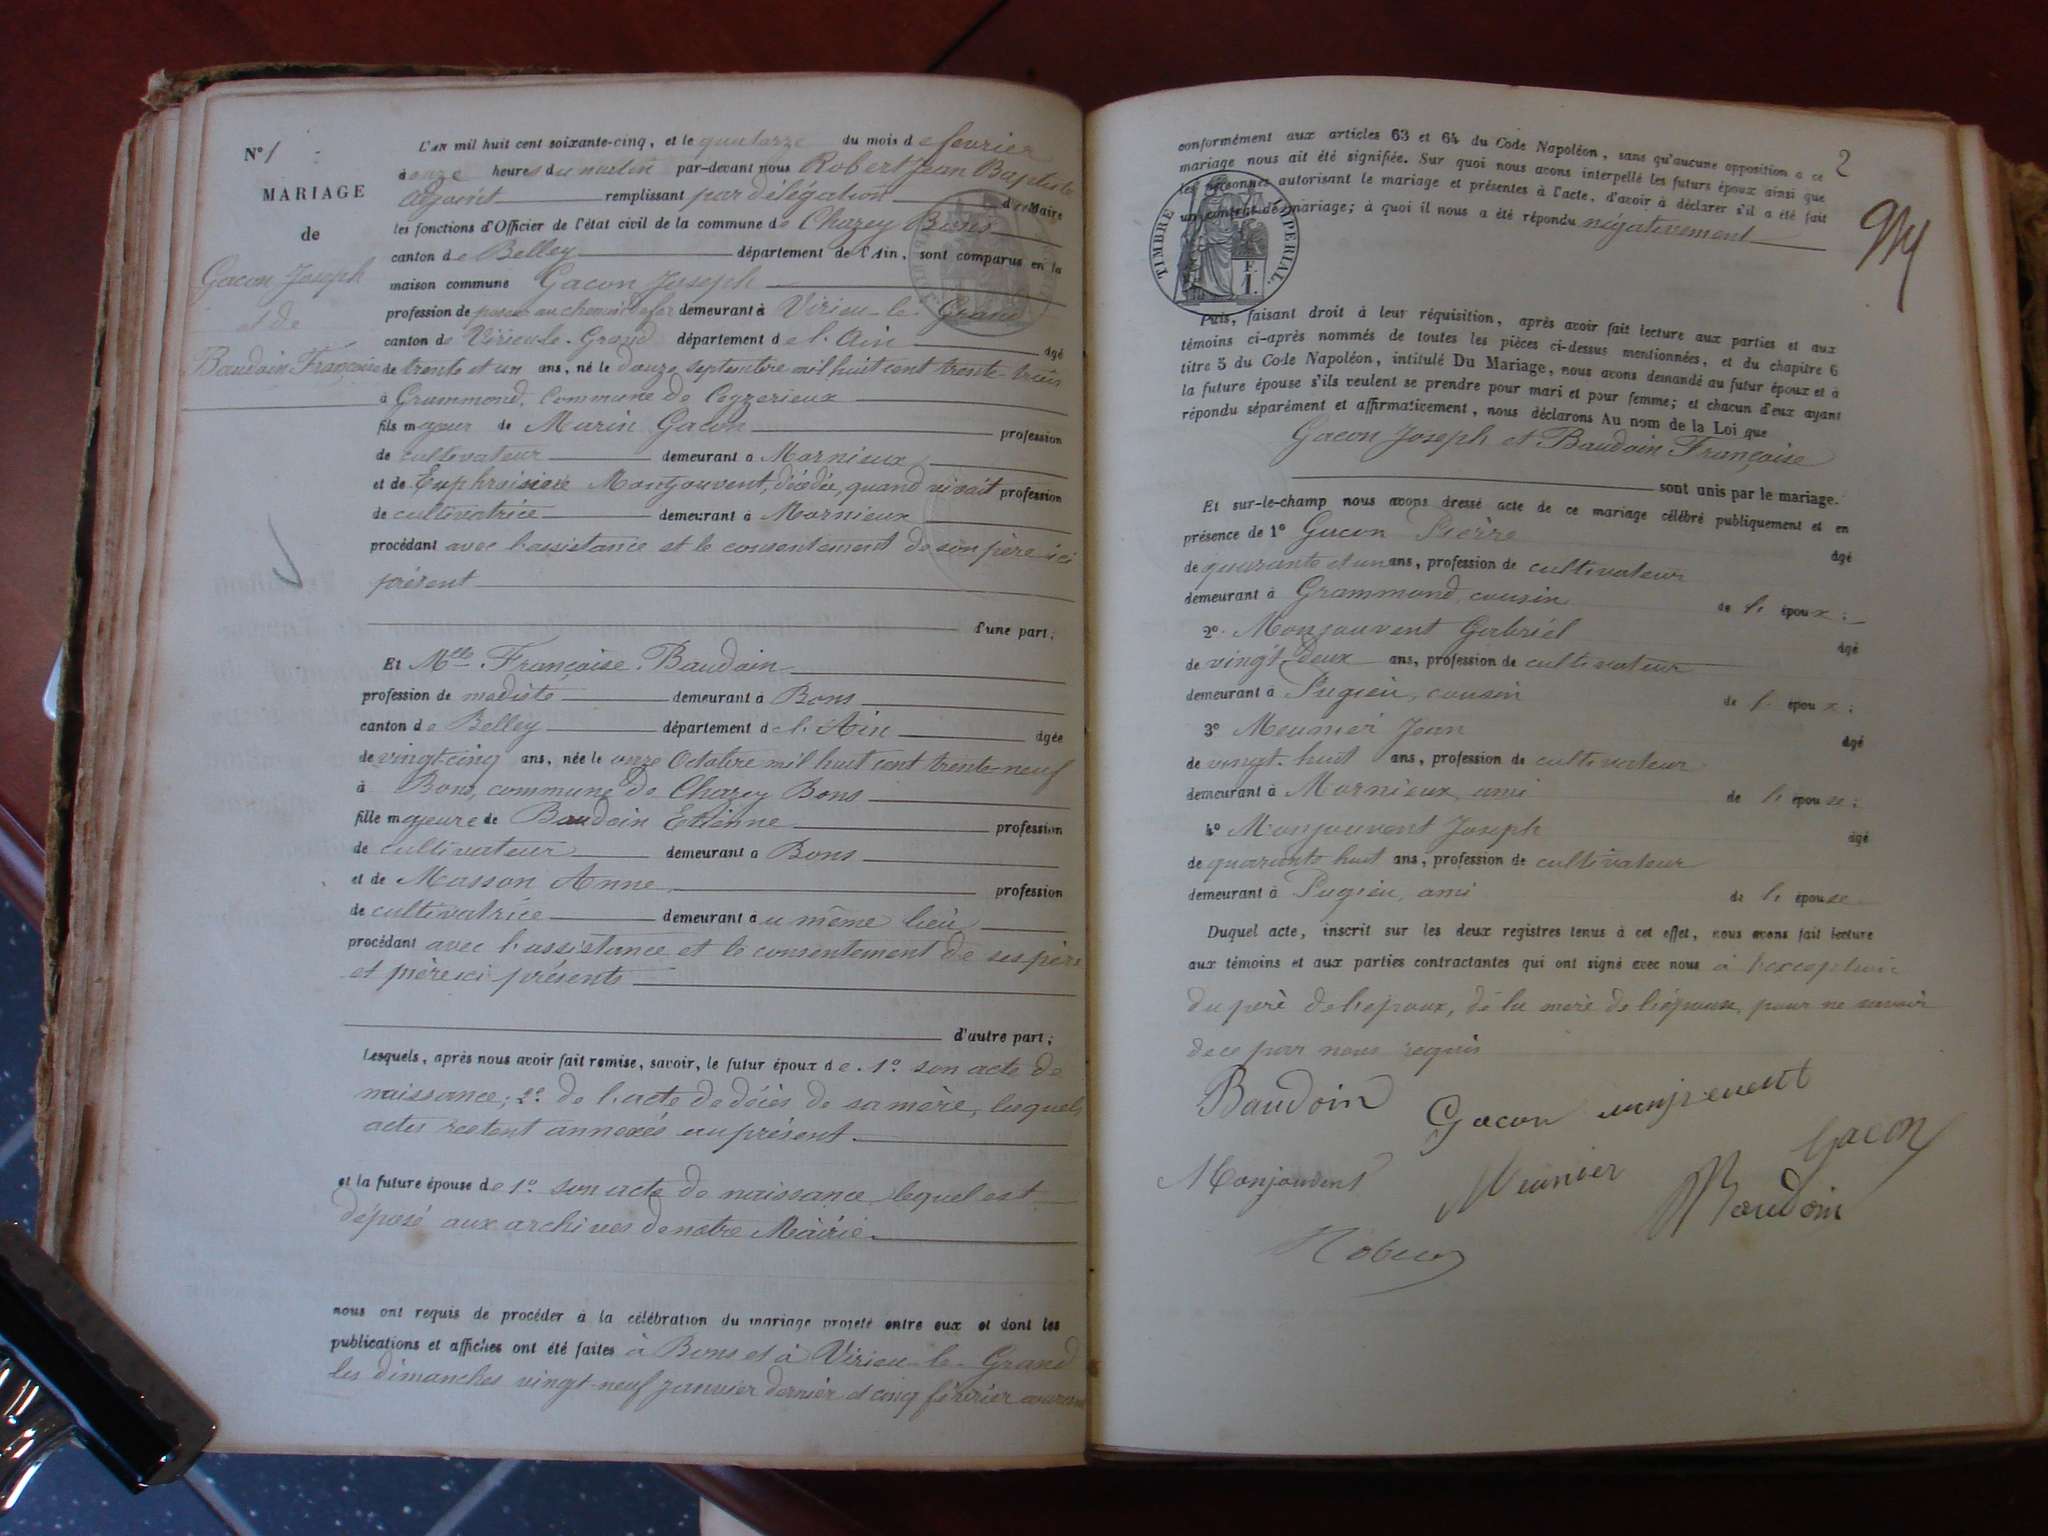 N° 1
MARIAGE
de
Gacon Joseph
et de
Baudoin Françoise
L'AN mil huit cent soixante-cinq, et le quatorze du mois de fevrier
à onze heures du matin par-devant nous Robert Jean Baptiste
adjoint remplissant par délégation du Maire
les fonctions d'Officier de l'état civil de la commune de Chazey Bons
canton de Belley département de l'Ain, sont comparus en la
maison commune Gacon Joseph
profession de poseur au chemin de fer demeurant à Virieu-le-Grand
canton de Virieu-le-Grand département de l'Ain âgé
de trente et un ans, né le douze septembre mil huit cent trente-trois
à Grammond, commune de Ceyzerieux
fils majeur de Marin Gacon profession
de cultivateur demeurant à Marnieux
et de Euphraisiere Monjouvent, décédée, quand vivait profession
de cultivatrice demeurant à Marnieux
procédant avec l'assistance et le consentement de son père ici
présent
d'une part;
Et Melle Françoise Baudoin
profession de modiste demeurant à Bons
canton de Belley département de l'Ain âgée
de vingt-cinq ans, née le onze Octobre mil huit cent trente-neuf
à Bons, commune de Chazey Bons
fille majeure de Baudoin Etienne profession
de cultivateur demeurant à Bons
et de Masson Anne profession
de cultivatrice demeurant au même lieu
procédant avec l'assistance et le consentement de ses père
et mère ici présents
d'autre part;
Lesquels, après nous avoir fait remise, savoir, le futur époux de 1° son acte de
naissance; 2° de l'acte de décès de sa mère, lesquels
actes restent annexés au présent.
et la future épouse de 1° son acte de naissance lequel est
déposé aux archives de notre Mairie.
nous ont requis de procéder à la célébration du mariage projeté entre eux et dont les
publications et affiches ont été faites à Bons et à Virieu-le-Grand
les dimanches vingt-neuf janvier dernier et cinq février courant
2
conformément aux articles 63 et 64 du Code Napoléon, sans qu'aucune opposition a ce
mariage nous ait été signifiée. Sur quoi nous avons interpellé les futurs époux ainsi que
les personnes autorisant le mariage et présentes à l'acte, d'avoir à déclarer s'il a été fait
un contrat de mariage; à quoi il nous a été répondu négativement
TIMBRE IMPERIAL.
F.
1.
Puis, faisant droit à leur réquisition, après avoir fait lecture aux parties et aux
témoins ci-après nommés de toutes les pièces ci-dessus mentionnées, et du chapitre 6
titre 5 du Code Napoléon, intitulé Du Mariage, nous avons demandé au futur époux et à
la future épouse s'ils veulent se prendre pour mari et pour femme; et chacun d'eux ayant
répondu séparément et affirmativement, nous déclarons Au nom de la Loi que
Gacon Joseph et Baudoin Françoise
sont unis par le mariage.
Et sur-le-champ nous avons dressé acte de ce mariage célébré publiquement et en
présence de 1° Gacon Pierre âgé
de quarante et un ans, profession de cultivateur
demeurant à Grammond, cousin de l'époux;
2° Monjouvent Gabriel âgé
de vingt-deux ans, profession de cultivateur
demeurant à Pugieu, cousin de l'époux;
3° Meunier Jean âgé
de vingt-huit ans, profession de cultivateur
demeurant à Marnieux, ami de l'épouse;
4° Monjouvent Joseph âgé
de quarante huit ans, profession de cultivateur
demeurant à Pugieu, ami de l'épouse
Duquel acte, inscrit sur les deux registres tenus à cet effet, nous avons fait lecture
aux témoins et aux parties contractantes qui ont signé avec nous à l'exception
du père de l'époux, de la mère de l'épouse, pour ne savoir
de ce par nous requis
Baudoin Gacon monjouvent
Monjouvent Meunier Baudoin Gacon
Robert